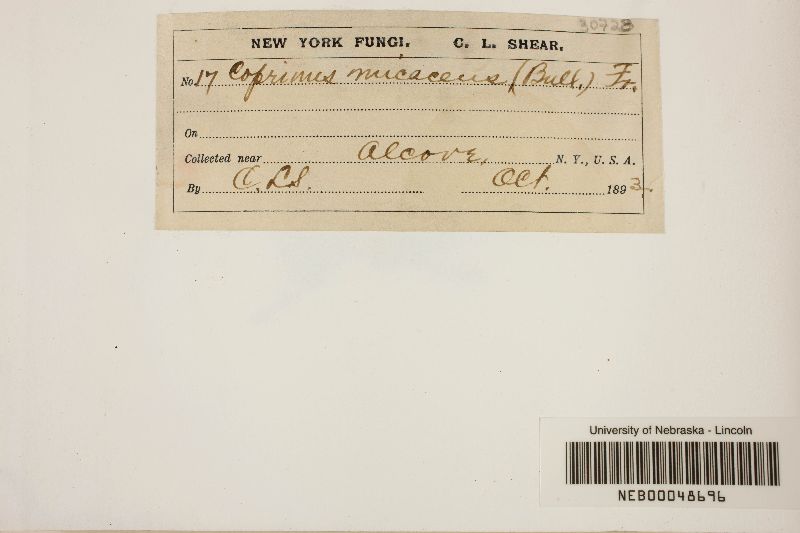 30728
NEW YORK FUNGI. C. L. SHEAR.
No. 17 Coprinus micaceus (Bull.) Fr.
On
Collected near Alcove, N. Y., U. S. A.
By C.L.S. Oct. 1893.
University of Nebraska - Lincoln
NEB00048696